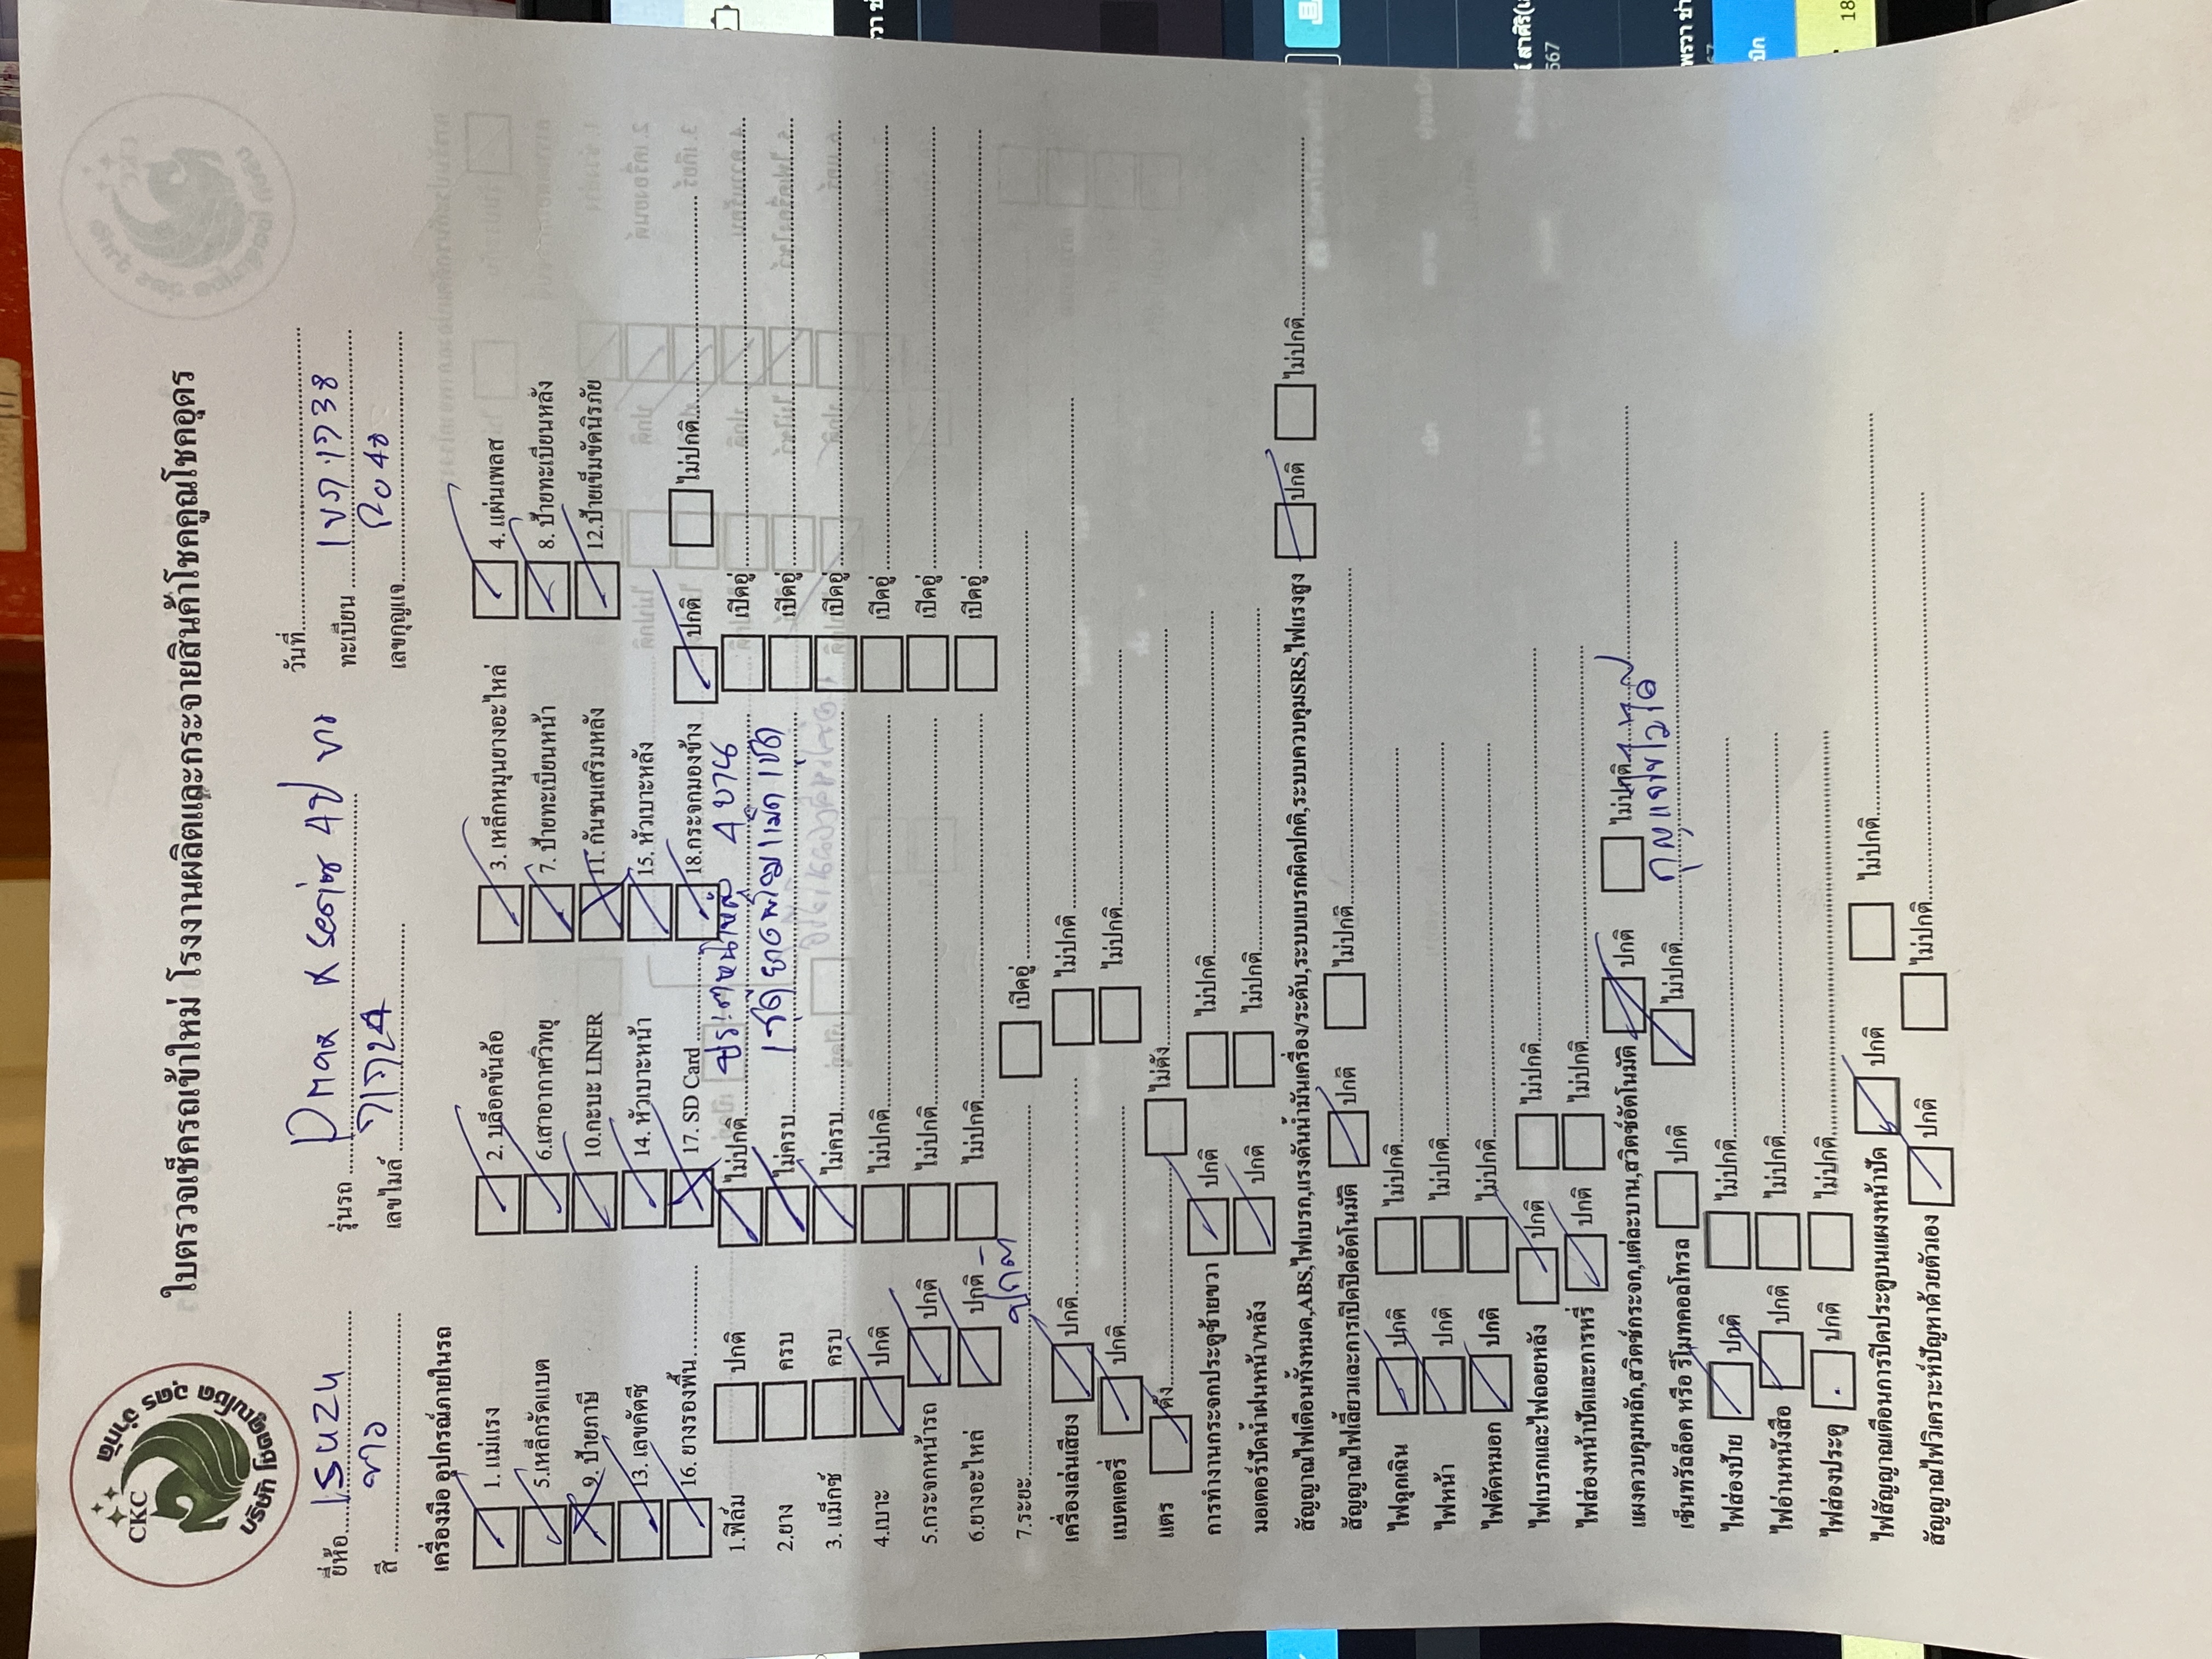 CKC
บริษัท โชคคูณโชค อุดร จำกัด
ใบตรวจเช็ครถเข้าใหม่ โรงงานผลิตและกระจายสินค้าโชคคูณโชคอุดร
ยี่ห้อ ISUZU รุ่นรถ Dmax วันที่
สี ขาว เลขไมล์ ทะเบียน
เลขกุญแจ
เครื่องมือ อุปกรณ์ภายในรถ
1. แม่แรง 2. บล็อคขันล้อ 3. เหล็กหมุนยางอะไหล่ 4. แผ่นเพลส
5.เหล็กรัดแบต 6.เสาอากาศวิทยุ 7. ป้ายทะเบียนหน้า 8. ป้ายทะเบียนหลัง
9. ป้ายภาษี 10.กะบะ LINER 11. กันชนเสริมหลัง 12.ป้ายเข็มขัดนิรภัย
13. เลขคัตซี 14. หัวเบาะหน้า 15. หัวเบาะหลัง
16. ยางรองพื้น 17. SD Card 18.กระจกมองข้าง ปกติ ไม่ปกติ
1.ฟิล์ม ปกติ ไม่ปกติ 4 บาน เปิดอยู่
2.ยาง ครบ ไม่ครบ เปิดอยู่
3. แม็กซ์ ครบ ไม่ครบ เปิดอยู่
4.เบาะ ปกติ ไม่ปกติ เปิดอยู่
5.กระจกหน้ารถ ปกติ ไม่ปกติ เปิดอยู่
6.ยางอะไหล่ ปกติ ไม่ปกติ เปิดอยู่
7.ระยะ ปกติ เปิดอยู่
เครื่องเล่นเสียง ปกติ ไม่ปกติ
แบตเตอรี่ ปกติ ไม่ปกติ
แตร ดัง ไม่ดัง
การทำงานกระจกประตูซ้ายขวา ปกติ ไม่ปกติ
มอเตอร์ปัดน้ำฝนหน้า/หลัง ปกติ ไม่ปกติ
สัญญาณไฟเตือนทั้งหมด,ABS,ไฟเบรก,แรงดันน้ำมันเครื่อง/ระดับ,ระบบเบรกผิดปกติ,ระบบควบคุมSRS,ไฟแรงสูง ปกติ ไม่ปกติ
สัญญาณไฟเลี้ยวและการเปิดปิดอัตโนมัติ ปกติ ไม่ปกติ
ไฟฉุกเฉิน ปกติ ไม่ปกติ
ไฟหน้า ปกติ ไม่ปกติ
ไฟตัดหมอก ปกติ ไม่ปกติ
ไฟเบรกและไฟถอยหลัง ปกติ ไม่ปกติ
ไฟส่องหน้าปัดและการหรี่ ปกติ ไม่ปกติ
แผงควบคุมหลัก,สวิตซ์กระจก,แต่ละบาน,สวิตซ์อัตโนมัติ ปกติ ไม่ปกติ
เซ็นทรัลล็อค หรือ รีโมทคอลโทรล ปกติ ไม่ปกติ
ไฟส่องป้าย ปกติ ไม่ปกติ
ไฟอ่านหนังสือ ปกติ ไม่ปกติ
ไฟส่องประตู ปกติ ไม่ปกติ
ไฟสัญญาณเตือนการปิดประตูบนแผงหน้าปัด ปกติ ไม่ปกติ
สัญญาณไฟวิเคราะห์ปัญหาด้วยตัวเอง ปกติ ไม่ปกติ